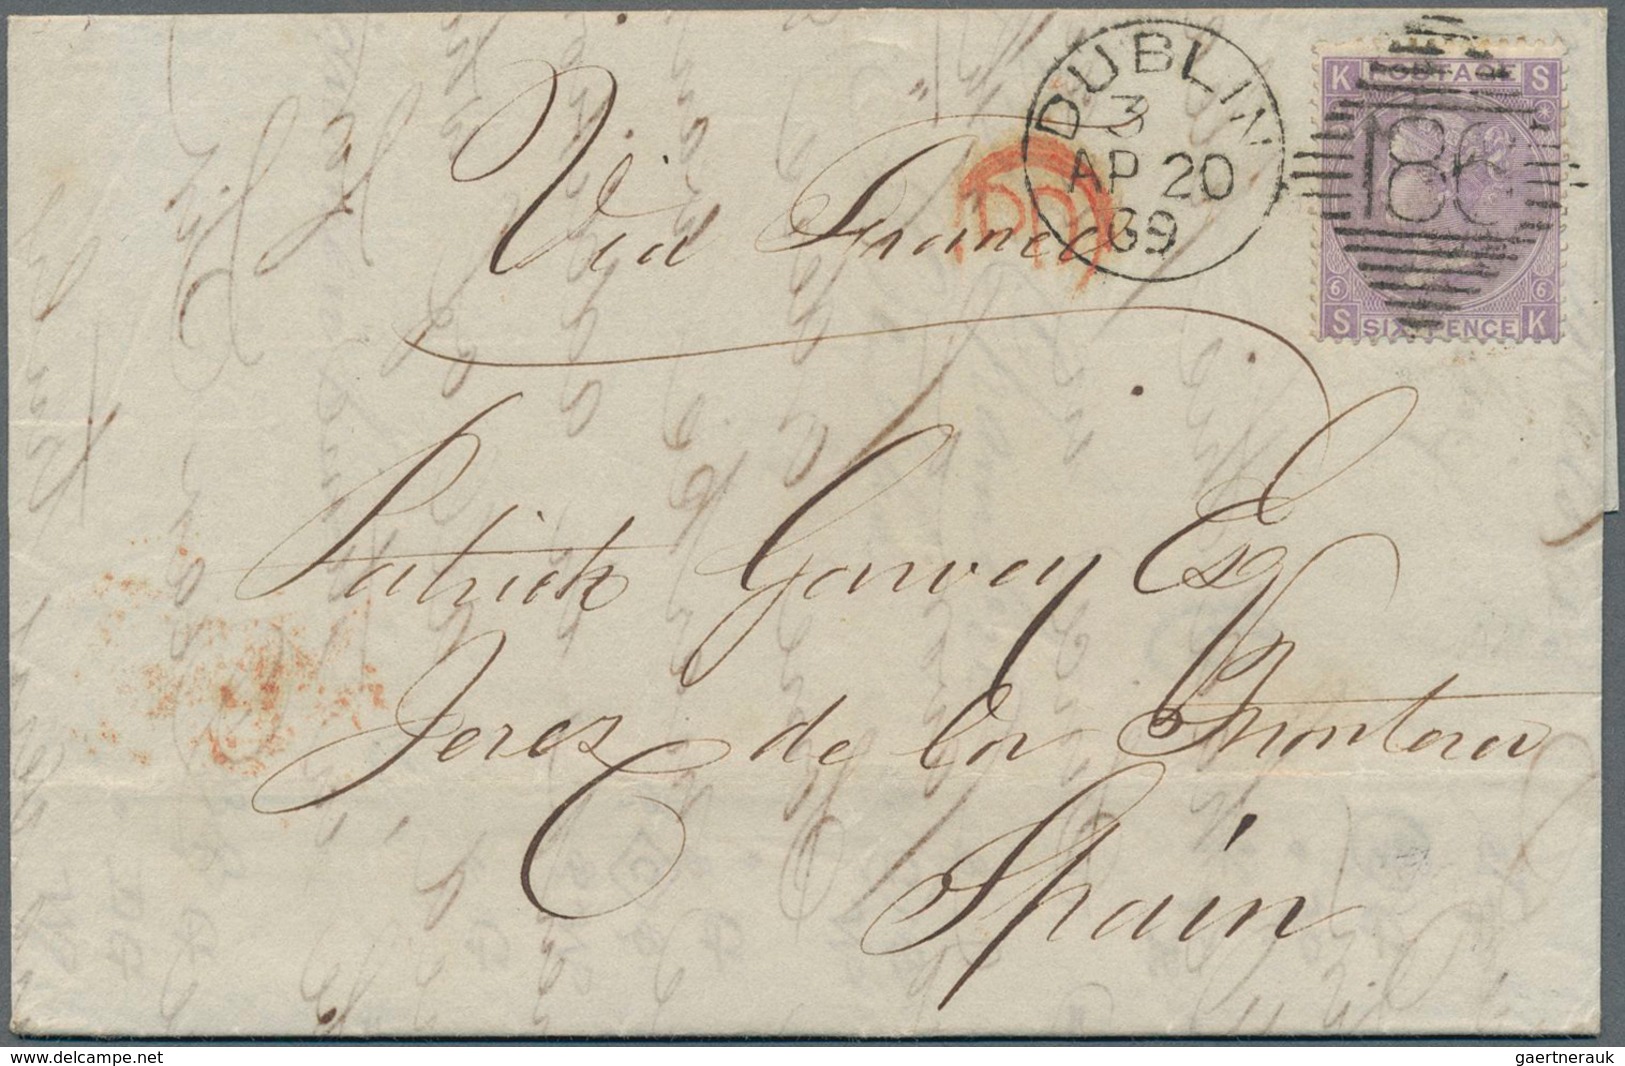 DUBLIN
3
AP 20
69
186
K POSTAGE S
6 6
S SIX PENCE K
PD
Via France
Patrick Garvey Esq
Jerez de la Frontera
Spain
www.delcampe.net
gaertnerauk